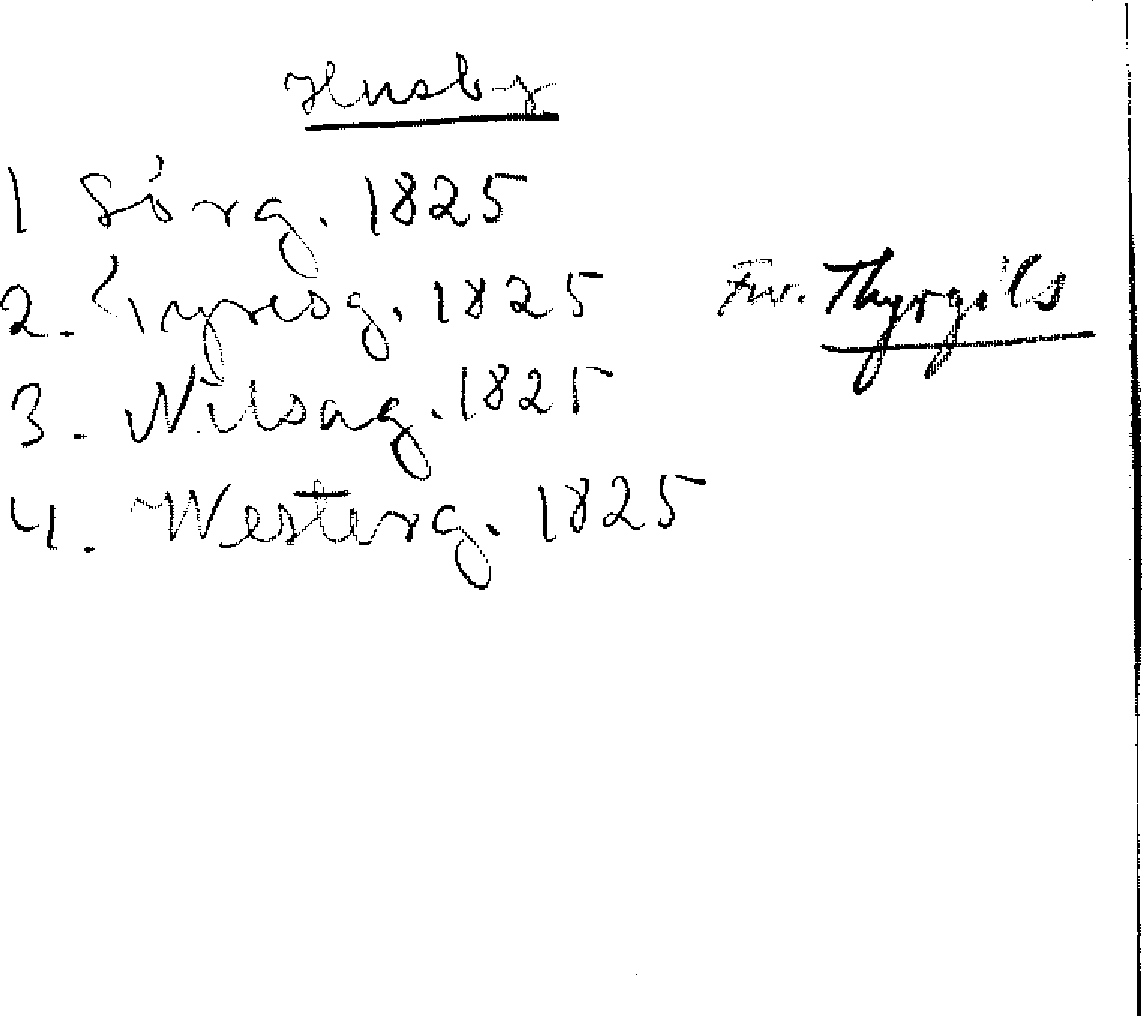 Husby
1 Sörg. 1825
2. Tyresg. 1825 Fnr. Thyrgils
3. Nilsag. 1825
4. Westerg. 1825